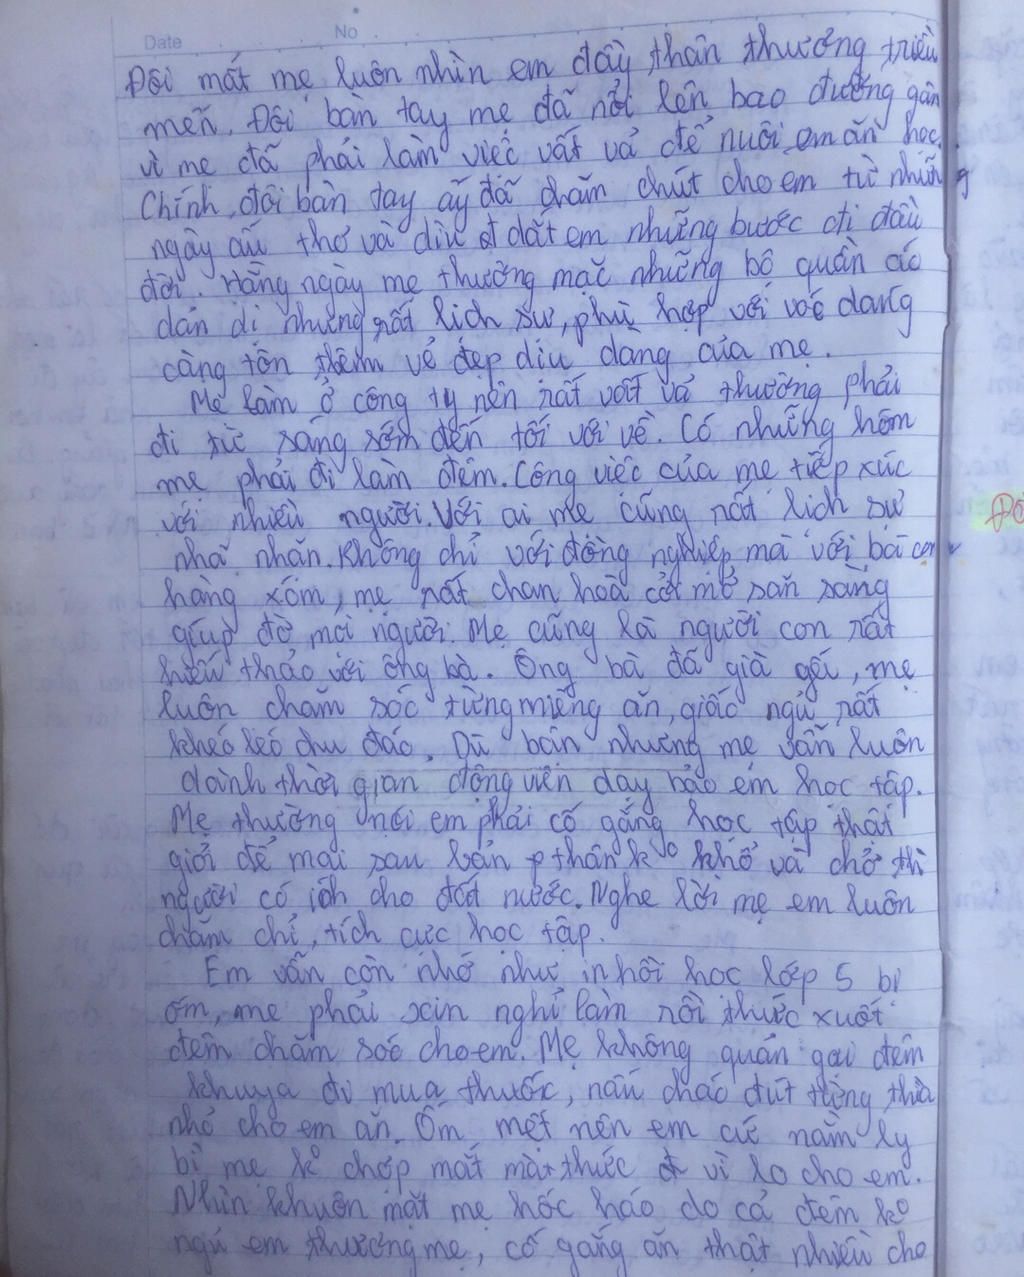 Date No
Đôi mắt mẹ luôn nhìn em đầy thân thương, triều
mến. Đôi bàn tay mẹ đã nổi lên bao đường gân
vì mẹ đã phải làm việc vất vả để nuôi em ăn học.
Chính đôi bàn tay ấy đã chăm chút cho em từ những
ngày ấu thơ và dìu dắt em những bước đi đầu
đời. Hằng ngày mẹ thường mặc những bộ quần áo
dản dị nhưng rất lịch sự, phù hợp với vóc dáng
càng tôn thêm vẻ đẹp dịu dàng của mẹ.
Mẹ làm ở công ty nên rất vất vả thường phải
đi từ sáng sớm đến tối với về. Có những hôm
mẹ phải đi làm đêm. Công việc của mẹ tiếp xúc
với nhiều người. Với ai mẹ cũng rất lịch sự
nhã nhặn. Không chỉ với đồng nghiệp mà với bà con
hàng xóm, mẹ rất chan hoà cởi mở sẵn sàng
giúp đỡ mọi người. Mẹ cũng là người con rất
hiếu thảo với ông bà. Ông bà đã già yếu, mẹ
luôn chăm sóc từng miếng ăn, giấc ngủ rất
khéo léo chu đáo. Dù bận nhưng mẹ vẫn luôn
dành thời gian động viên dạy bảo em học tập.
Mẹ thường nói em phải cố gắng học tập thật
giỏi để mai sau bản thân ko khổ và chở thì
người có ích cho đất nước. Nghe lời mẹ em luôn
chăm chỉ, tích cực học tập.
Em vẫn còn nhớ như in hồi học lớp 5 bị
ốm, mẹ phải xin nghỉ làm rồi thức xuốt
đêm chăm sóc cho em. Mẹ không quản gại đêm
khuya đi mua thuốc, nấu cháo đút từng thìa
nhỏ cho em ăn. Ốm mệt nên em cứ nằm ly
bì mẹ ko chợp mắt mà thức vì lo cho em.
Nhìn khuôn mặt mẹ hốc hác do cả đêm ko
ngủ em thương mẹ, cố gắng ăn thật nhiều cho